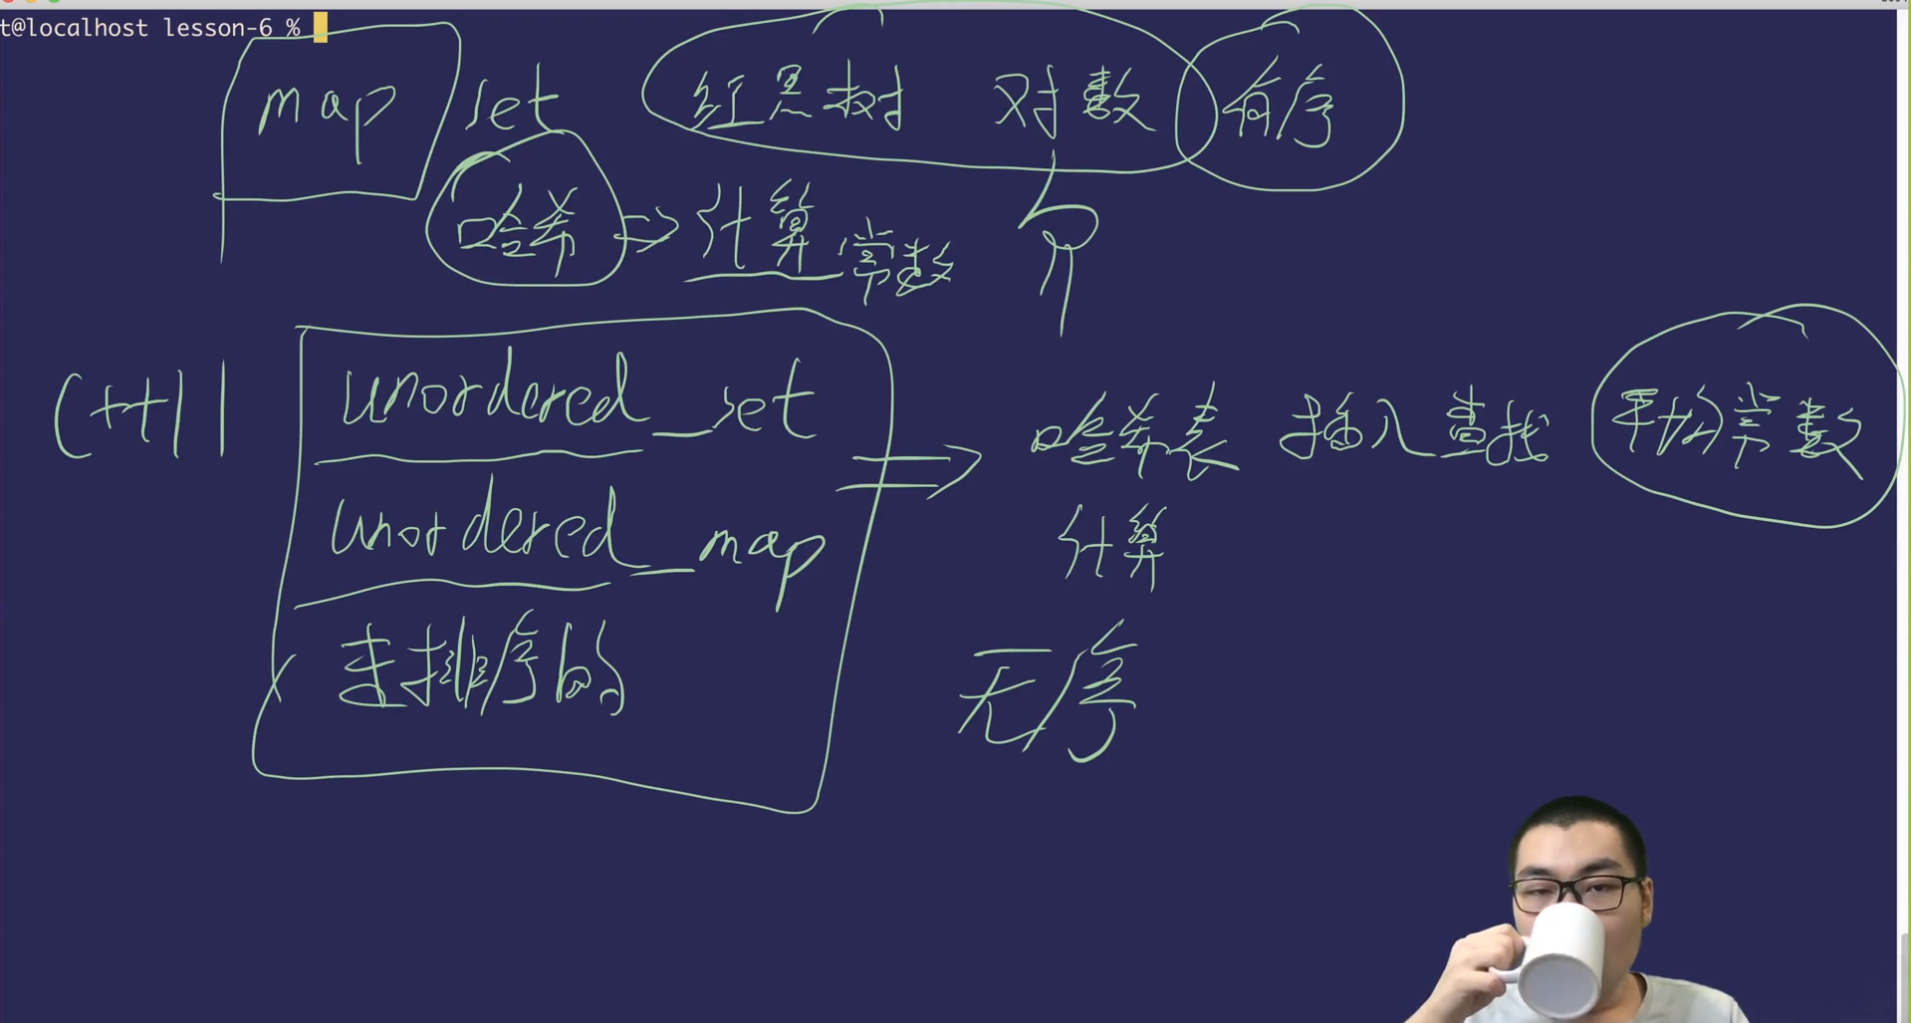 t@localhost lesson-6 %
map set 红黑树 对数 有序
哈希 => 计算 常数
C++11
unordered_set
unordered_map
未排序的
哈希表 插入查找 平均常数
计算
无序